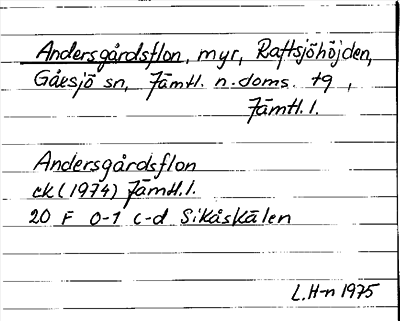 Andersgårdsflon, myr, Raftsjöhöjden,
Gåxsjö sn, Jämtl. n. doms. tg,
Jämtl. l.
Andersgårdsflon
ek (1974) Jämtl. l.
20 F 0-1 c-d Sikåskälen
L. H-n 1975